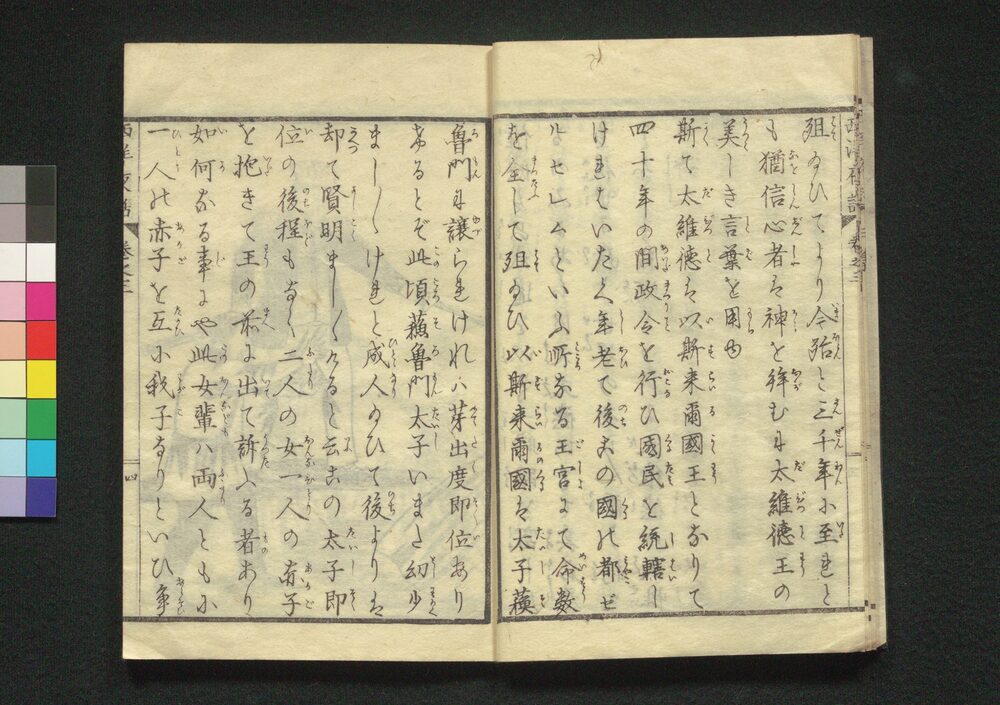 殂ゐひてより今殆と三千年に至れと
も猶信心者は神を拝むに太維徳王の
美しき言葉を用ゆ
斯て太維徳は以斯来爾國王となりて
四十年の間政令を行ひ國民を統轄し
けれはいたく年老て後はの國の都ゼ
ルセムといふ所なる王宮にて命数
を全して殂ゐひ以斯来爾國は太子蘓
魯門に譲られけれハ芽出度即位あり
けるとぞ此頃蘓魯門太子いまた幼少
ましましけれと成人ゐひて後よりは
却て賢明ましましけると云この太子即
位の後程もなく二人の女一人の赤子
を抱きて王の前に出て訴ふる者あり
如何なる事にや此女輩ハ両人ともに
一人の赤子を互に我子なりといひ争
西洋夜話
巻之三
四